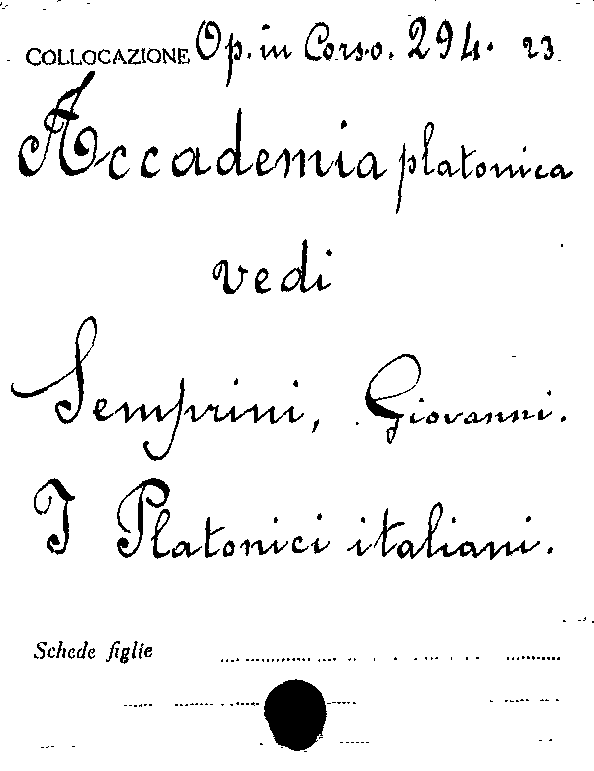 COLLOCAZIONE Op. in Corso. 294. 23
Accademia platonica
vedi
Semprini, Giovanni.
I Platonici italiani.
Schede figlie